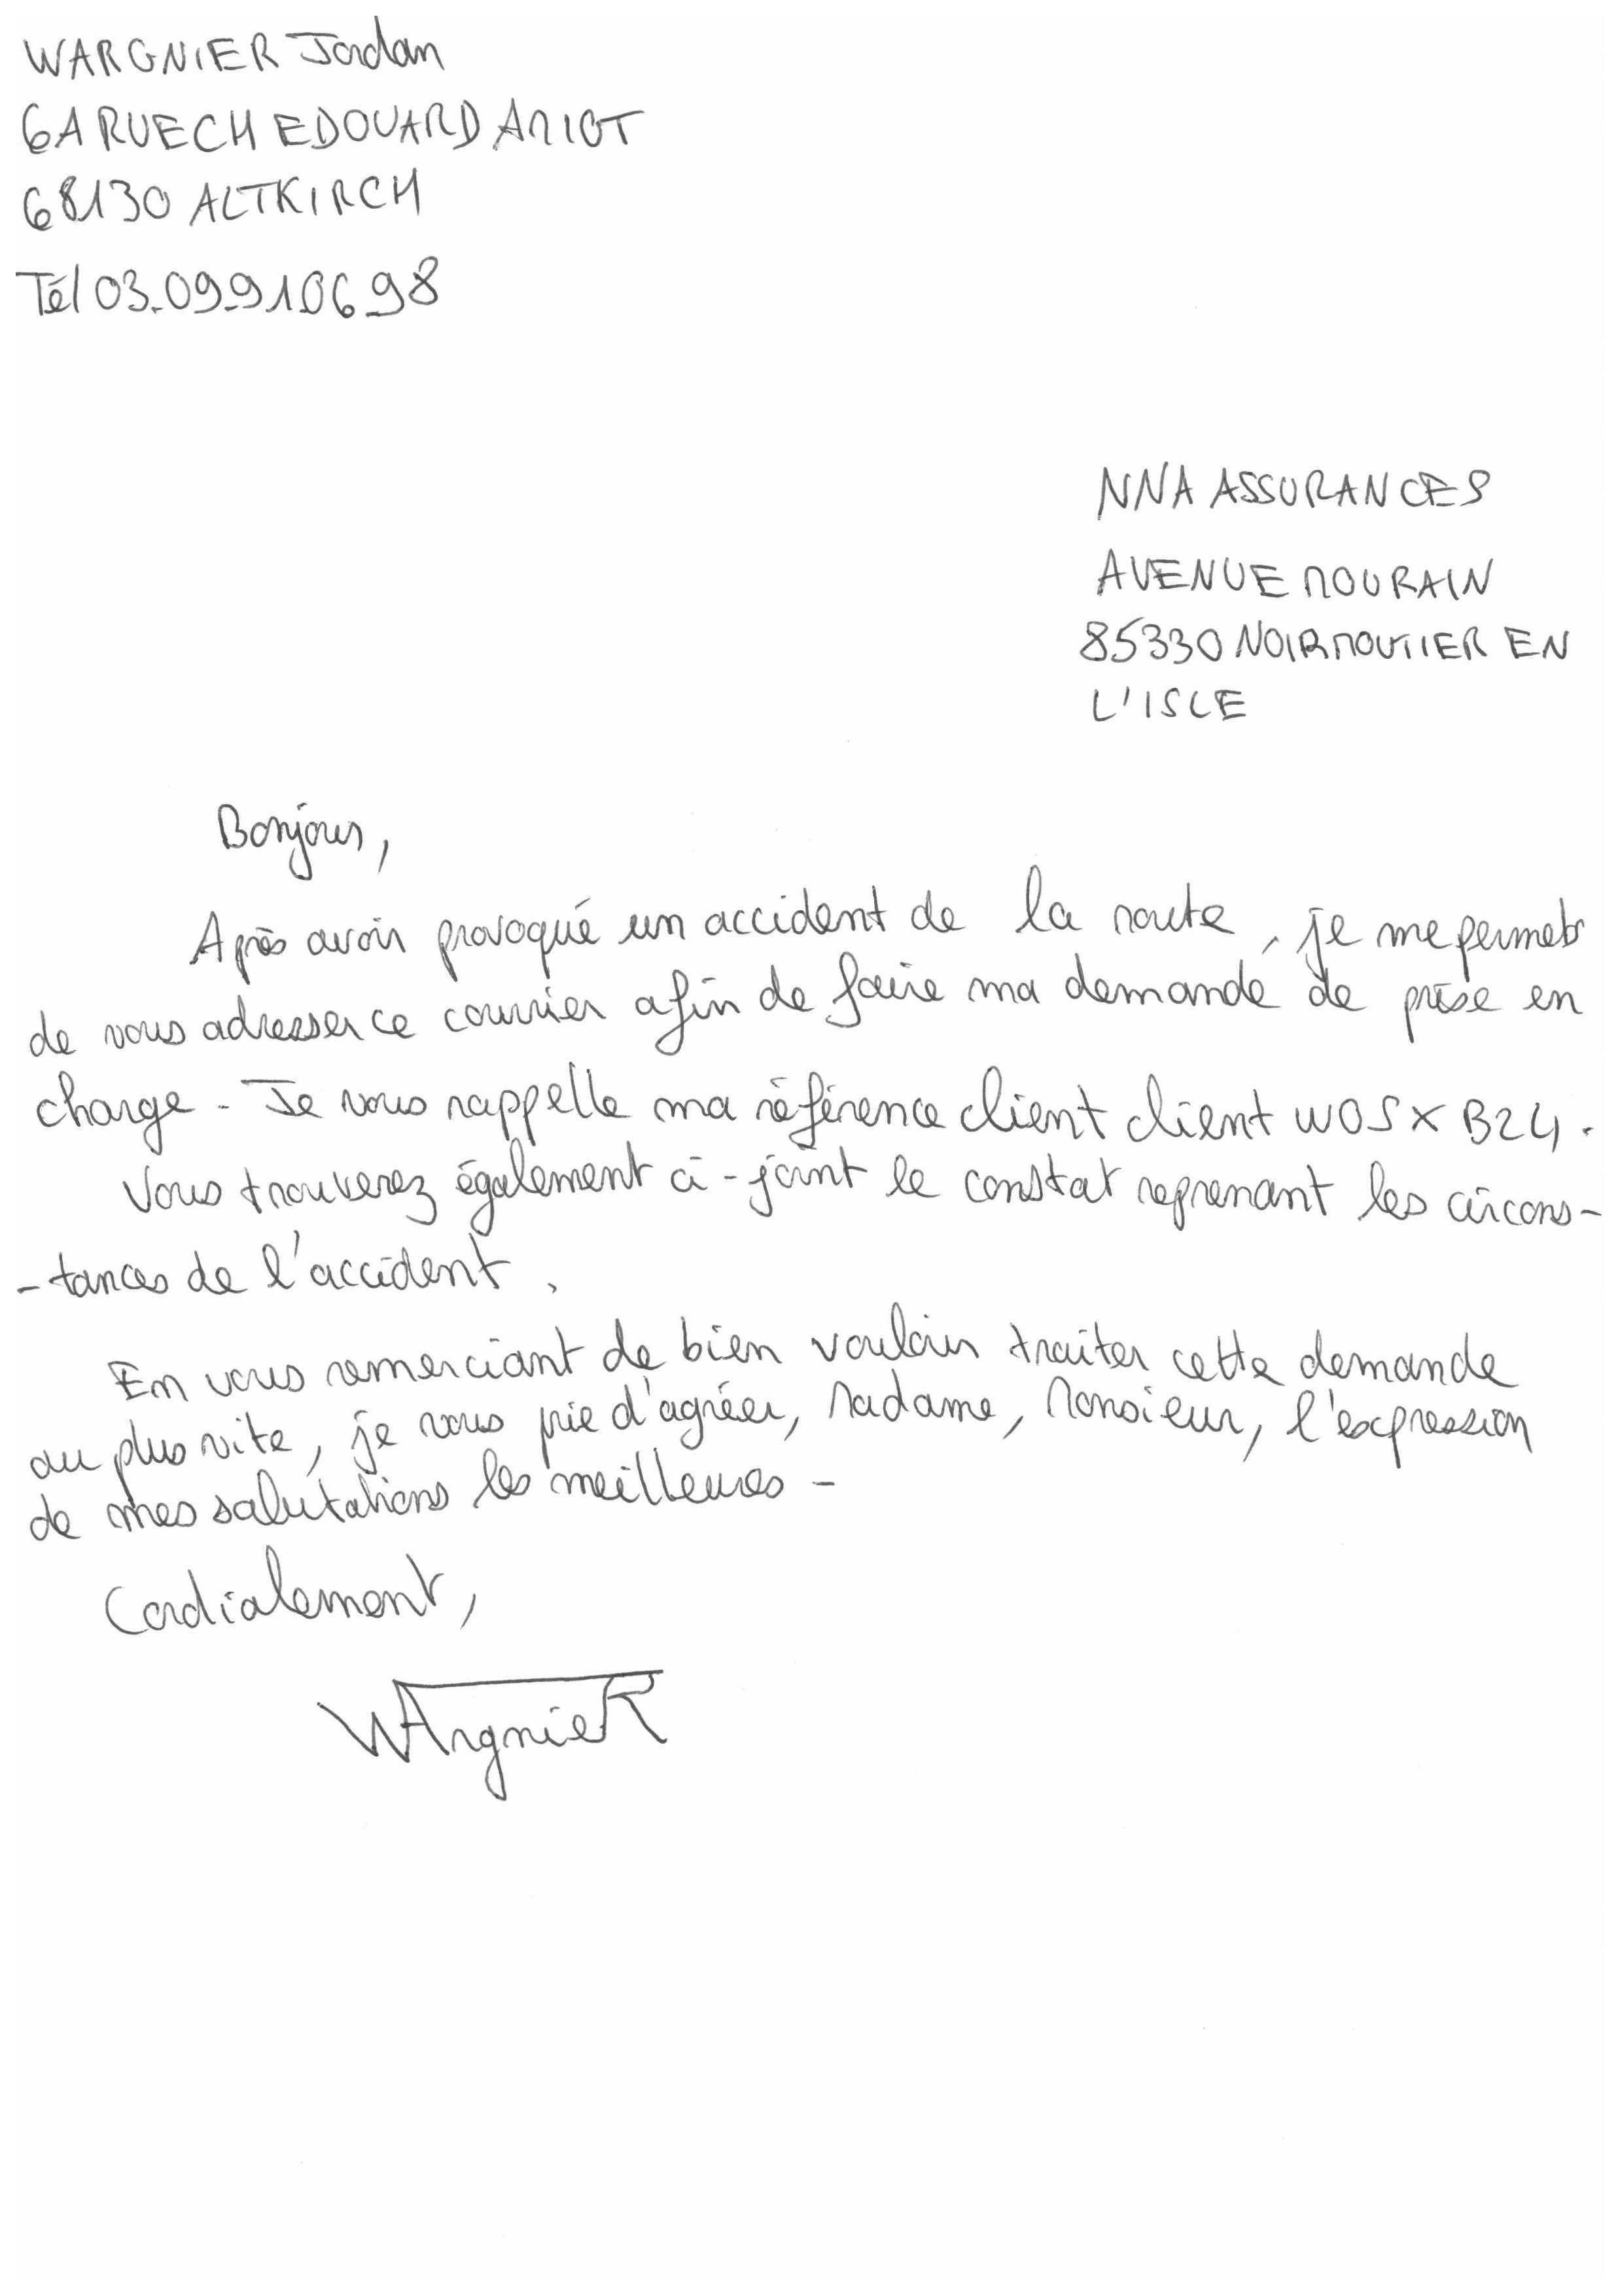 WARGNIER Jordan
6A RUE CH EDOUARD AMIOT
68130 ALTKIRCH
Tél 03.09.91.06.98
NNA ASSURANCES
AVENUE MOURAIN
85330 NOIRMOUTIER EN
L'ISLE
Bonjour,
Après avoir provoqué un accident de la route, je me permets
de vous adresser ce courrier afin de faire ma demande de prise en
charge. Je vous rappelle ma référence client client WOSXB24.
Vous trouverez également ci-joint le constat reprenant les circons-
-tances de l'accident.
En vous remerciant de bien vouloir traiter cette demande
au plus vite, je vous prie d'agréer, Madame, Monsieur, l'expression
de mes salutations les meilleures.
Cordialement,
WArgnieR